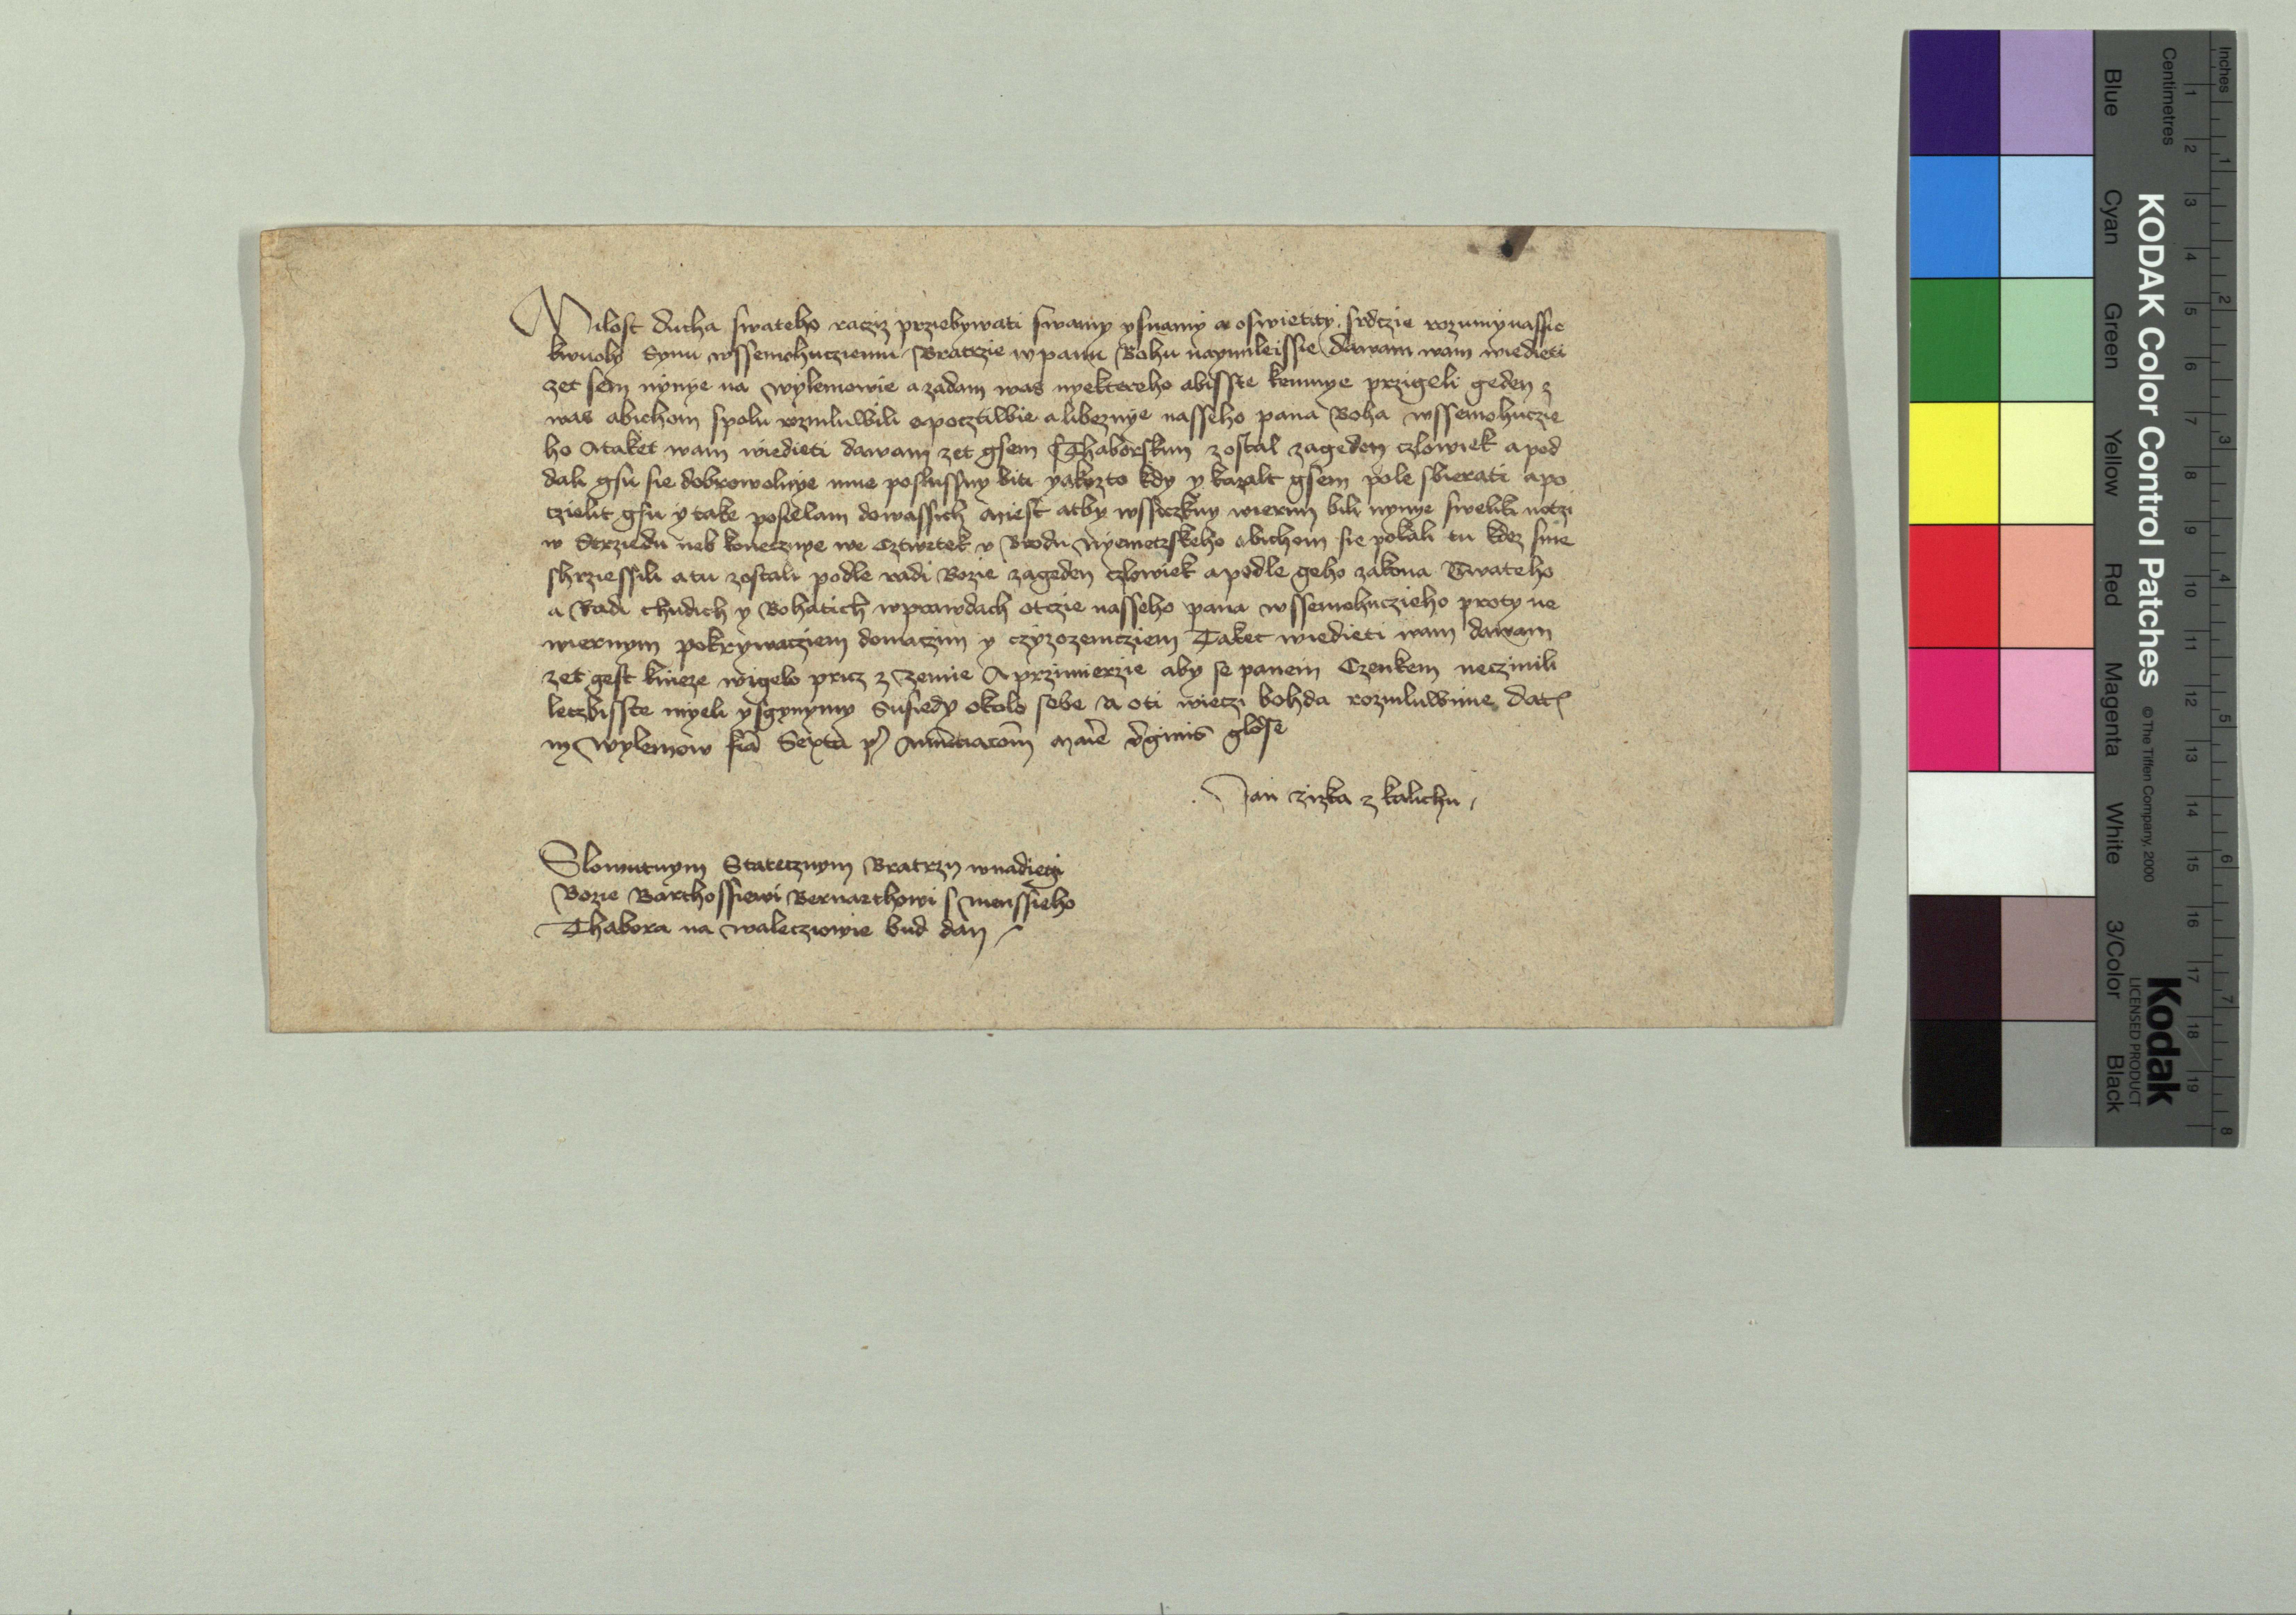 Milost ducha swateho racziz prziebywati swamy ysnamy a oswietity srdczie rozumy nassie
Synu wssemohucziemu Bratrzie wpanu Bohu naymileissie dawam wam wiedieti
zet sem nynye na wylemowie a zadam was nyektereho abisste kemnye przigeli geden z
was abichom spolu rozmluwili opocztiwbie a libeznye nasseho pana Boha wssemohuczie
ho Ataket wam wiedieti dawam zet gsem Sthaborskim zostal zageden czlowiek a pod
dali gsu sie dobrowolnye mne poslussny biti yakozto kdy y kazalt gsem pole sbierati a po
czielit gsu y take posielam dowassich miest atby wssiczkny wierni bili nynye swelik notzi
w Strziedu neb konecznye we cztwrtek v Brodu Nyemetzskeho abichom sie potkali tu kdez sme
shrziessili a tu zostali podle radi Bozie zageden czlowiek a podle geho zakona Swateho
a Radi chudich y Bohatich wprawdach otczie nasseho pana wssemohuczieho proty ne
wiernym pokrywacziem domaczim y czyzozemcziem Taket wiedieti wam dawam
zet gest knieze wigelo pricz z zemie A przimierzie aby se panem Czenkem neczinili
leczbisste myeli ysgynymy Susiedy okolo sebe A oti wieczi bohda rozmluwime Dat
in Wylemow fia Sexta p Annuntiacom marie virginis glose
Jan zizka z kalichu
Slowutnym Statecznym Bratrzy wnadiegi
Bozie Barthossiewi Bernarthowi s menssieho
Thabora na waleczowie bud dan
KODAK Color Control Patches
© The Tiffen Company, 2000
Kodak
LICENSED PRODUCT
Inches
1 2 3 4 5 6 7 8
Centimetres
1 2 3 4 5 6 7 8 9 10 11 12 13 14 15 16 17 18 19
Blue
Cyan
Green
Yellow
Red
Magenta
White
3/Color
Black